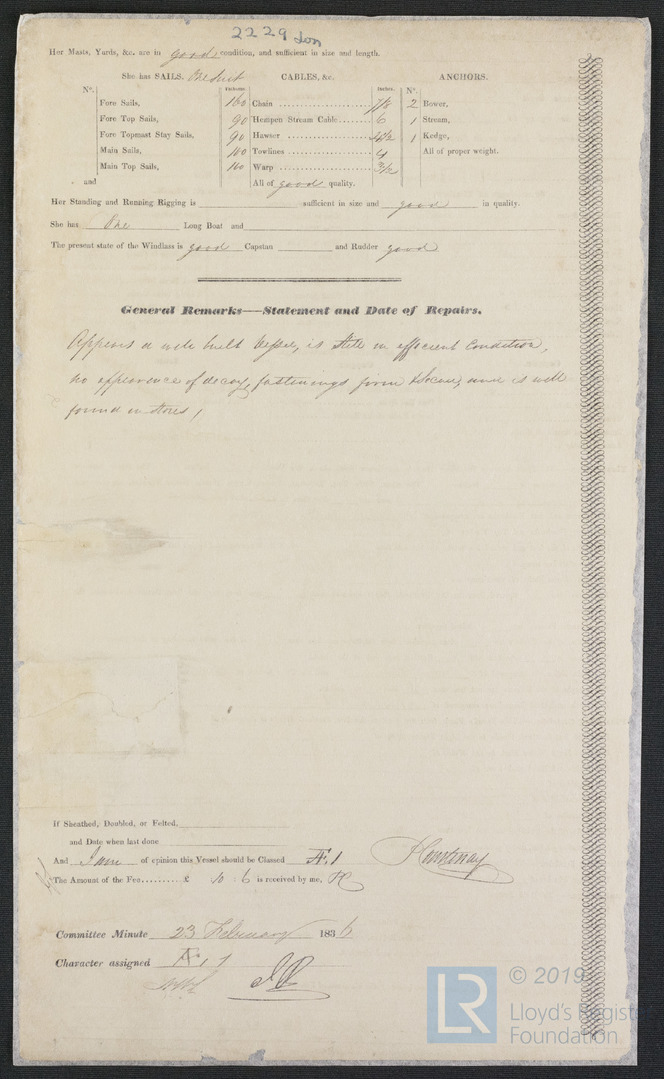 2229 Lon
Her Masts, Yards, &c. are in good condition, and sufficient in size and length.
She has SAILS. One Suit CABLES, &c. ANCHORS.
N°. Fathoms. Inches. N°.
Fore Sails, 160 Chain 7/8 2 Bower,
Fore Top Sails, 90 Hempen Stream Cable 6 1 Stream,
Fore Topmast Stay Sails, 90 Hawser 4 1/2 1 Kedge,
Main Sails, 100 Towlines 4 All of proper weight.
Main Top Sails, 100 Warp 3 1/2
and All of good quality.
Her Standing and Running Rigging is sufficient in size and good in quality.
She has One Long Boat and
The present state of the Windlass is good Capstan and Rudder good
General Remarks—Statement and Date of Repairs.
Appears a well built Vessel, is still in efficient Condition,
no appearance of decay, fastenings firm & and is well
found in Stores,
If Sheathed, Doubled, or Felted.
and Date when last done
And I am of opinion this Vessel should be Classed Æ 1 Courtenay
The Amount of the Fee £ 10 : 6 is received by me,
Committee Minute 23 February 1836
Character assigned Æ 1
LR © 2019
Lloyd's Register
Foundation